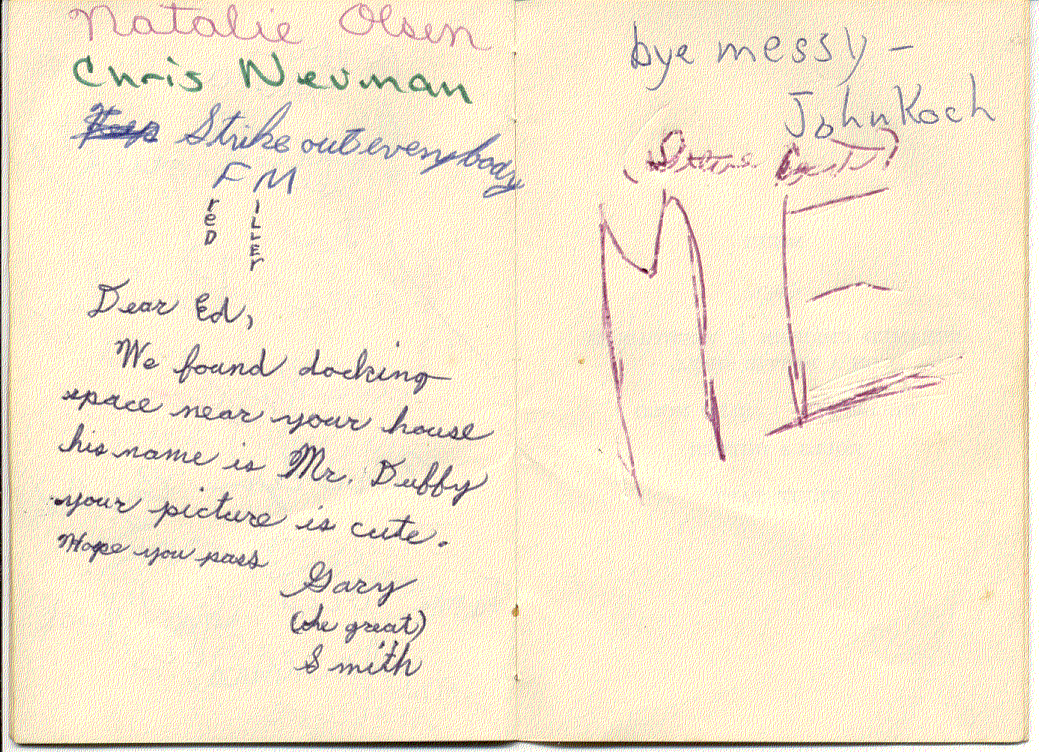 Natalie Olsen
Chris Neuman
Strike out everybody
FreD MILLEr
Dear Ed,
We found docking
space near your house
his name is Mr. Duffy
your picture is cute.
Hope you pass
Gary
(the great)
Smith
bye messy –
John Koch
ME